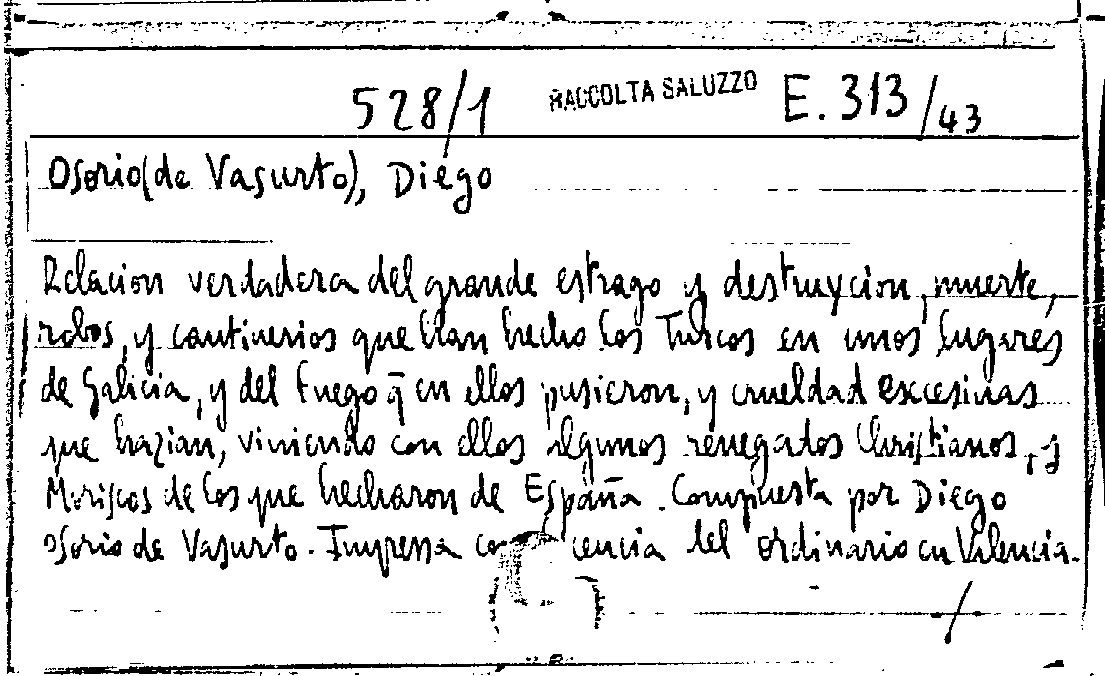 528/1 RACCOLTA SALUZZO E. 313/43
Osorio (de Vasurto), Diego
Relacion verdadera del grande estrago y destruycion, muerte,
robos, y cautiverios que han hecho los Turcos en unos lugares
de Galicia, y del fuego q̄ en ellos pusieron, y crueldad excesivas
que hazian, viniendo con ellos algunos renegados Christianos, y
Moriscos de los que hecharon de España. Compuesta por Diego
Osorio de Vasurto. Impressa cencia del ordinario en Valencia.